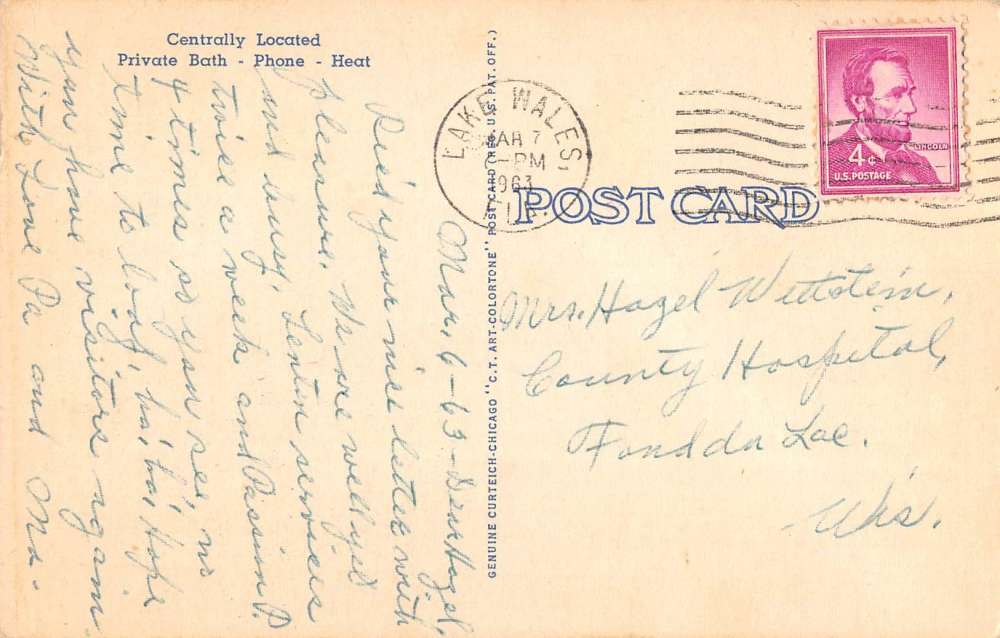 Centrally Located
Private Bath - Phone - Heat
Mar. 6-63-Dear Hazel,
Rec'd your nice letter with
pleasure. We are well yes
and busy, Lenten services
twice a week and Passion P.
4 times so you see no
time to loaf, ha! ha! Hope
you have visitors again
With Love Pa and Ma.
GENUINE CURTEICH-CHICAGO "C.T. ART-COLORTONE" POST CARD (REG. U.S. PAT. OFF.)
LAKE WALES,
MAR 7
PM
1963
4¢
LINCOLN
U.S. POSTAGE
POST CARD
Mrs. Hazel Wettstein,
County Hospital,
Fond du Lac.
Wis.